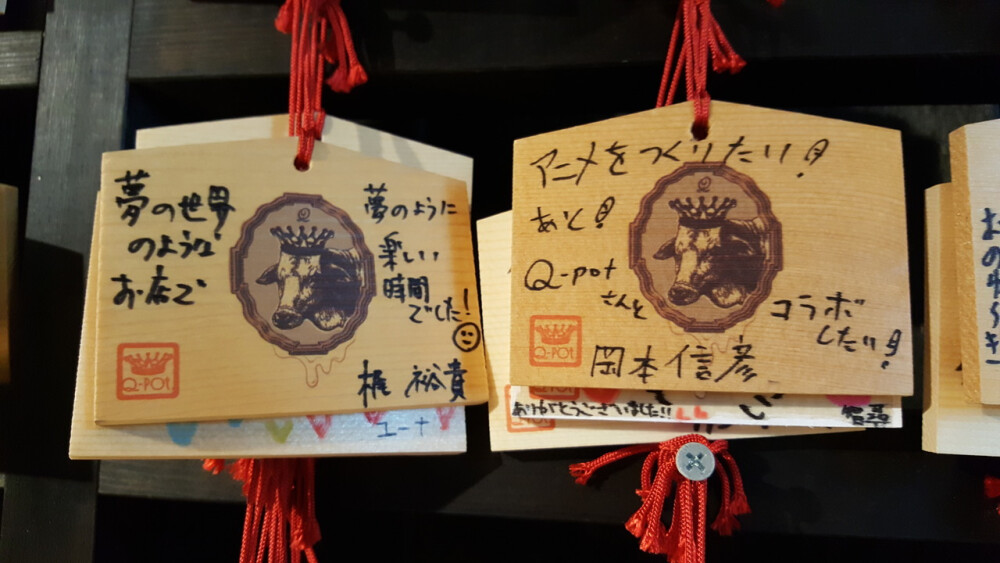 夢の世界
のような
お店で
夢のように
楽しい
時間
でした!
梶 裕貴
Q-POT
ユーナ
アニメをつくりたい!
あと!
Q-pot
さんと
コラボ
したい!
岡本信彦
Q-POT
ありがとうございました!!